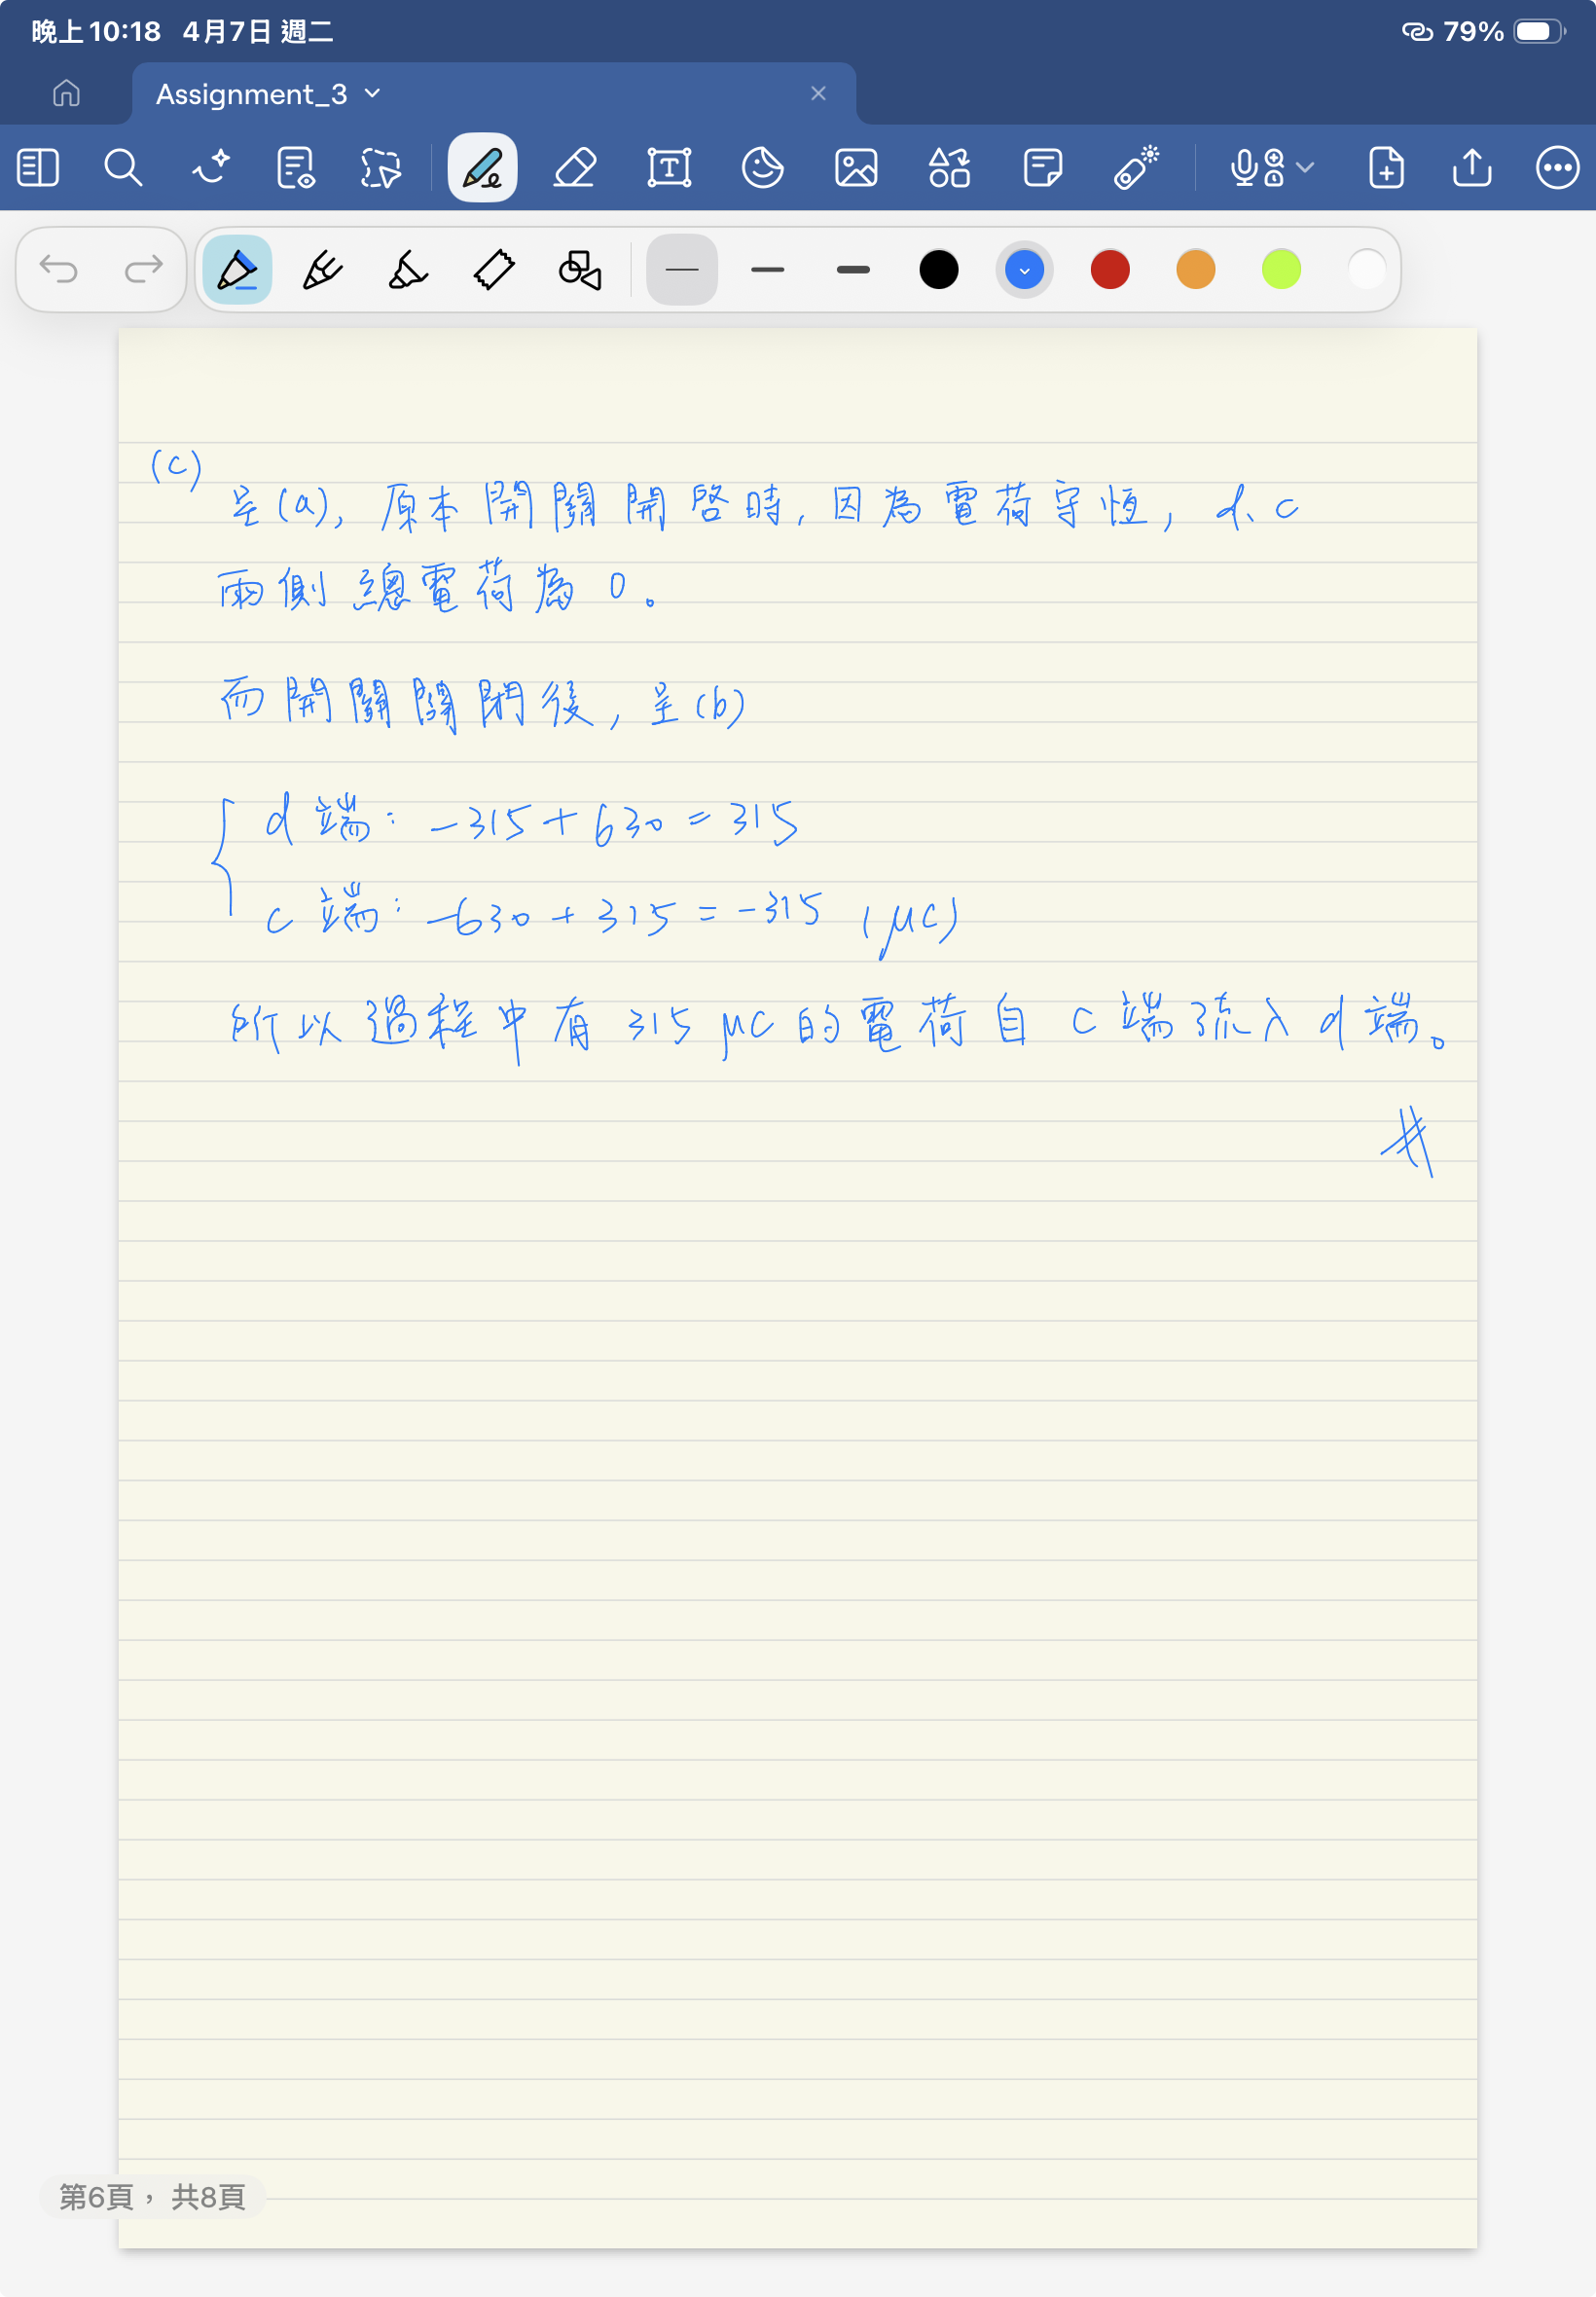 晚上10:18 4月7日 週二
79%
Assignment_3
(c)
呈(a), 原本開關開啓時, 因為電荷守恆, d、c
兩側總電荷為 0。
而開關關閉後, 呈(b)
d 端: -315 + 630 = 315
c 端: -630 + 315 = -315 (μC)
所以過程中有 315 μC 的電荷自 c 端流入 d 端。
#
第6頁，共8頁